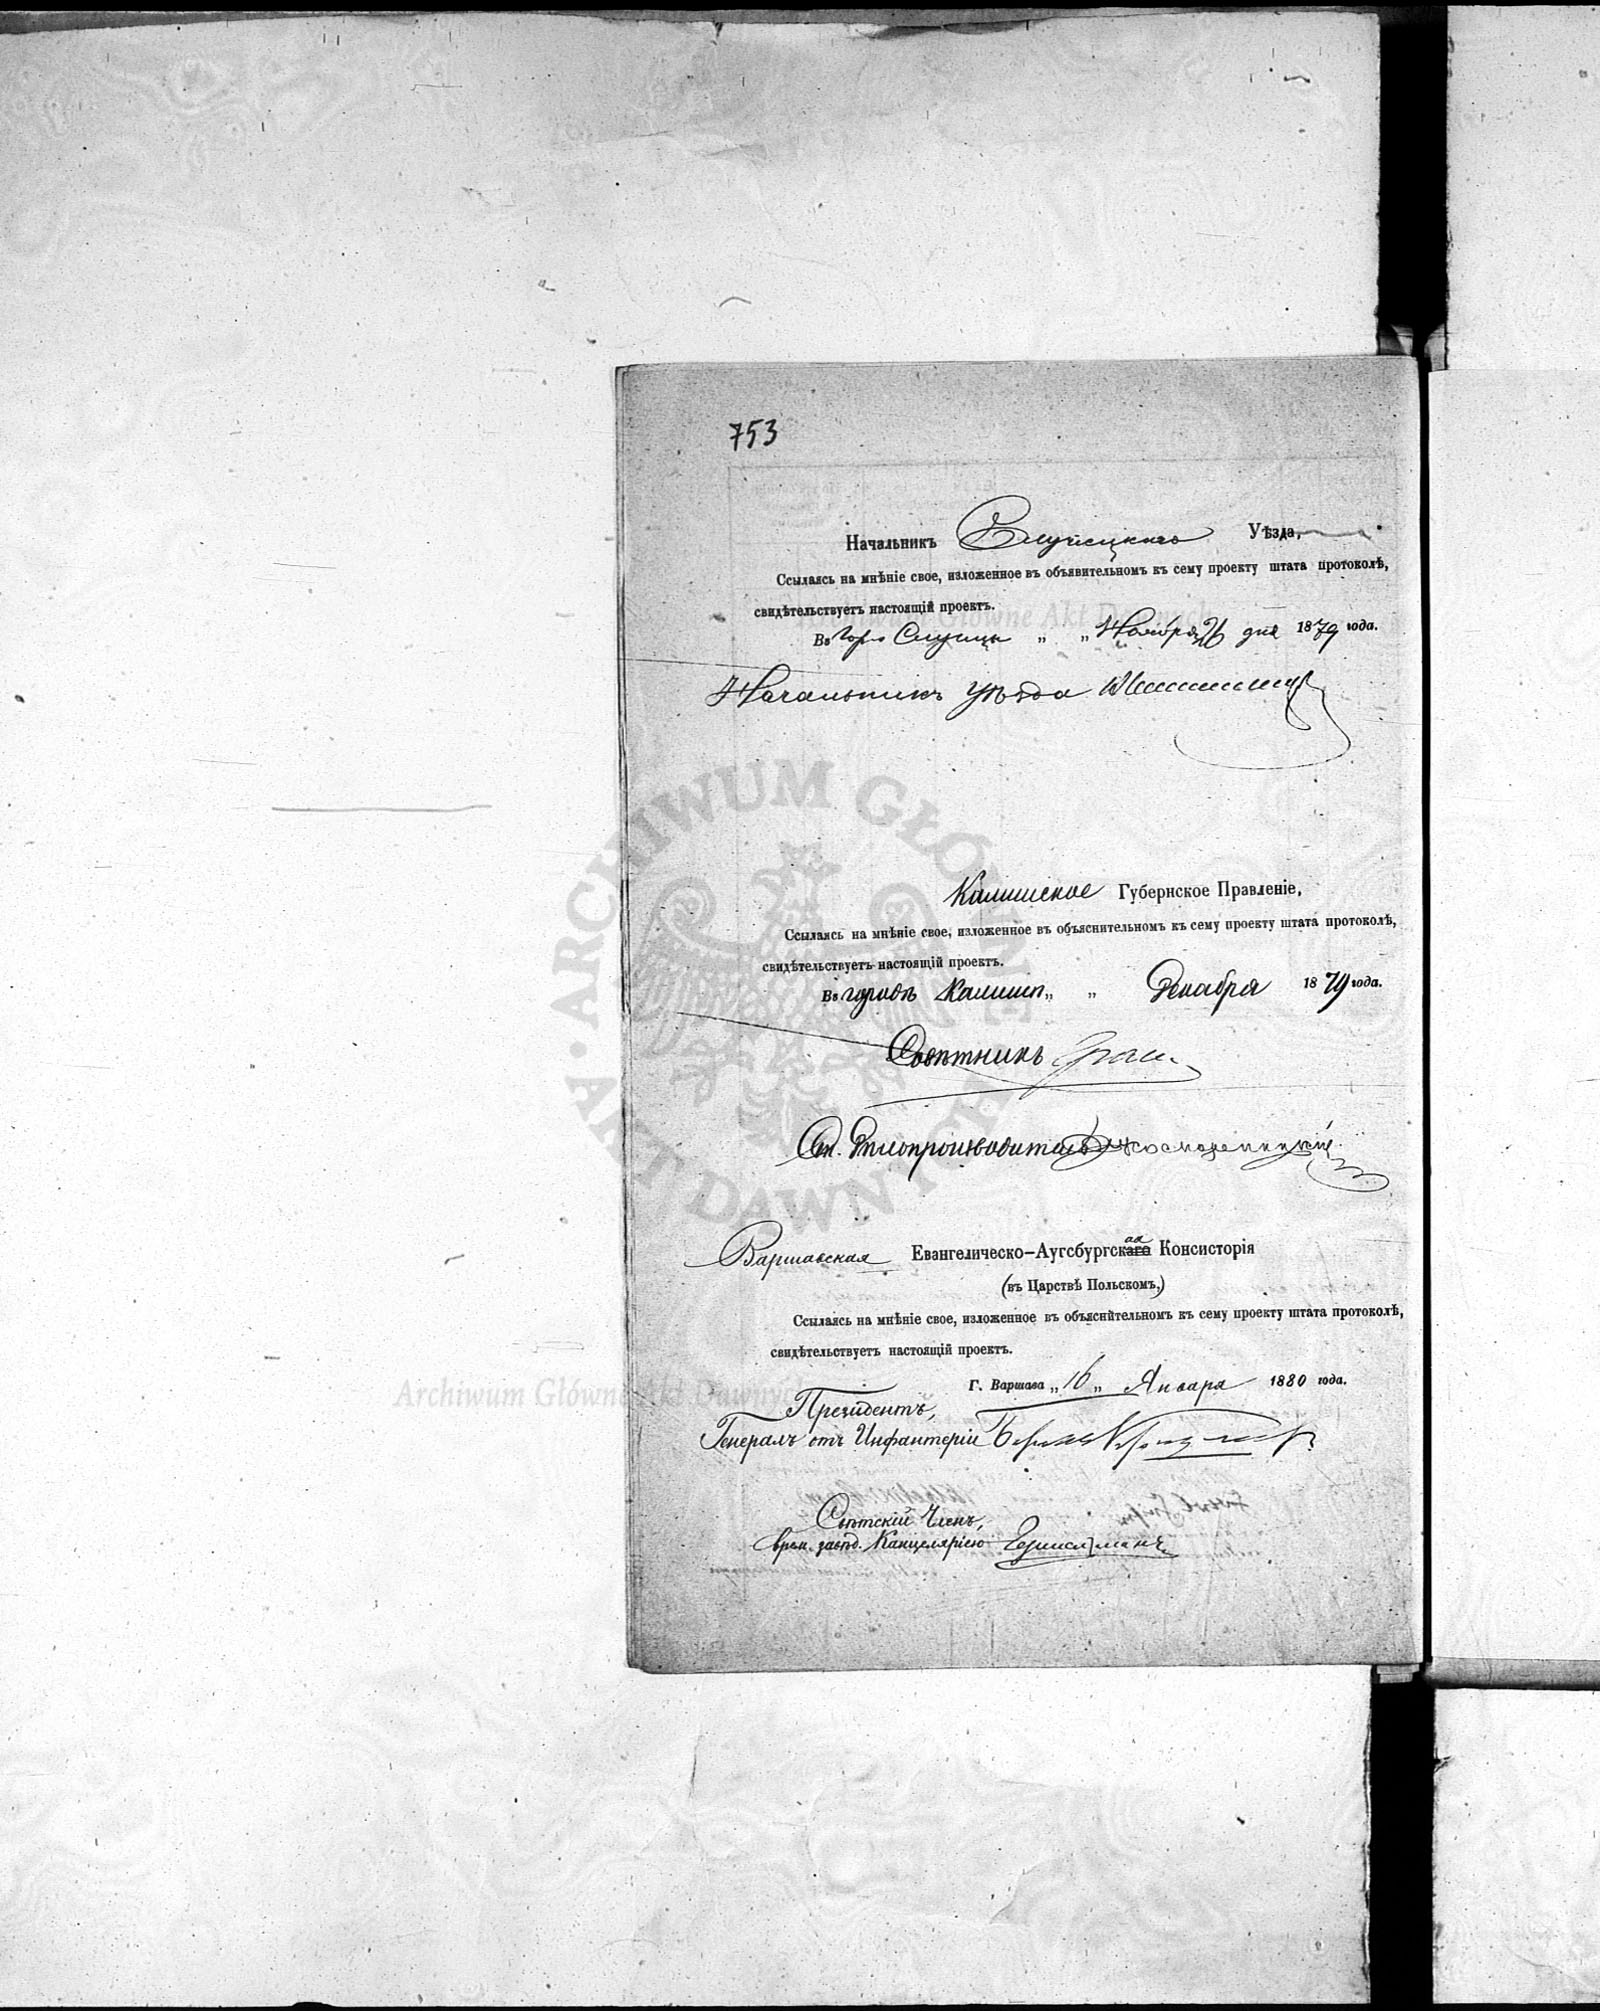 753
Начальникъ Слупецкаго Уѣзда,
Ссылаясь на мнѣніе свое, изложенное въ объявительномъ къ сему проекту штата протоколѣ,
свидѣтельствуетъ настоящій проектъ.
Въ гор. Слупцы „ „ Ноября 26 дня 1879 года.
Начальникъ уѣзда
Калишское Губернское Правленіе,
Ссылаясь на мнѣніе свое, изложенное въ объяснительномъ къ сему проекту штата протоколѣ,
свидѣтельствуетъ настоящій проектъ.
Въ городѣ Калишѣ „ „ Декабря 1879 года.
Совѣтникъ
Ст. Дѣлопроизводитель
Варшавская Евангелическо-Аугсбургскаго ая Консисторія
(въ Царствѣ Польскомъ,)
Ссылаясь на мнѣніе свое, изложенное въ объяснительномъ къ сему проекту штата протоколѣ,
свидѣтельствуетъ настоящій проектъ.
Г. Варшава „16„ Января 1880 года.
Президентъ,
Генералъ отъ Инфантеріи
Свѣтскій Членъ,
врем. завѣд. Канцеляріею
ARCHIWUM GŁÓWNE AKT DAWNYCH
Archiwum Główne Akt Dawnych
Archiwum Główne Akt Dawnych